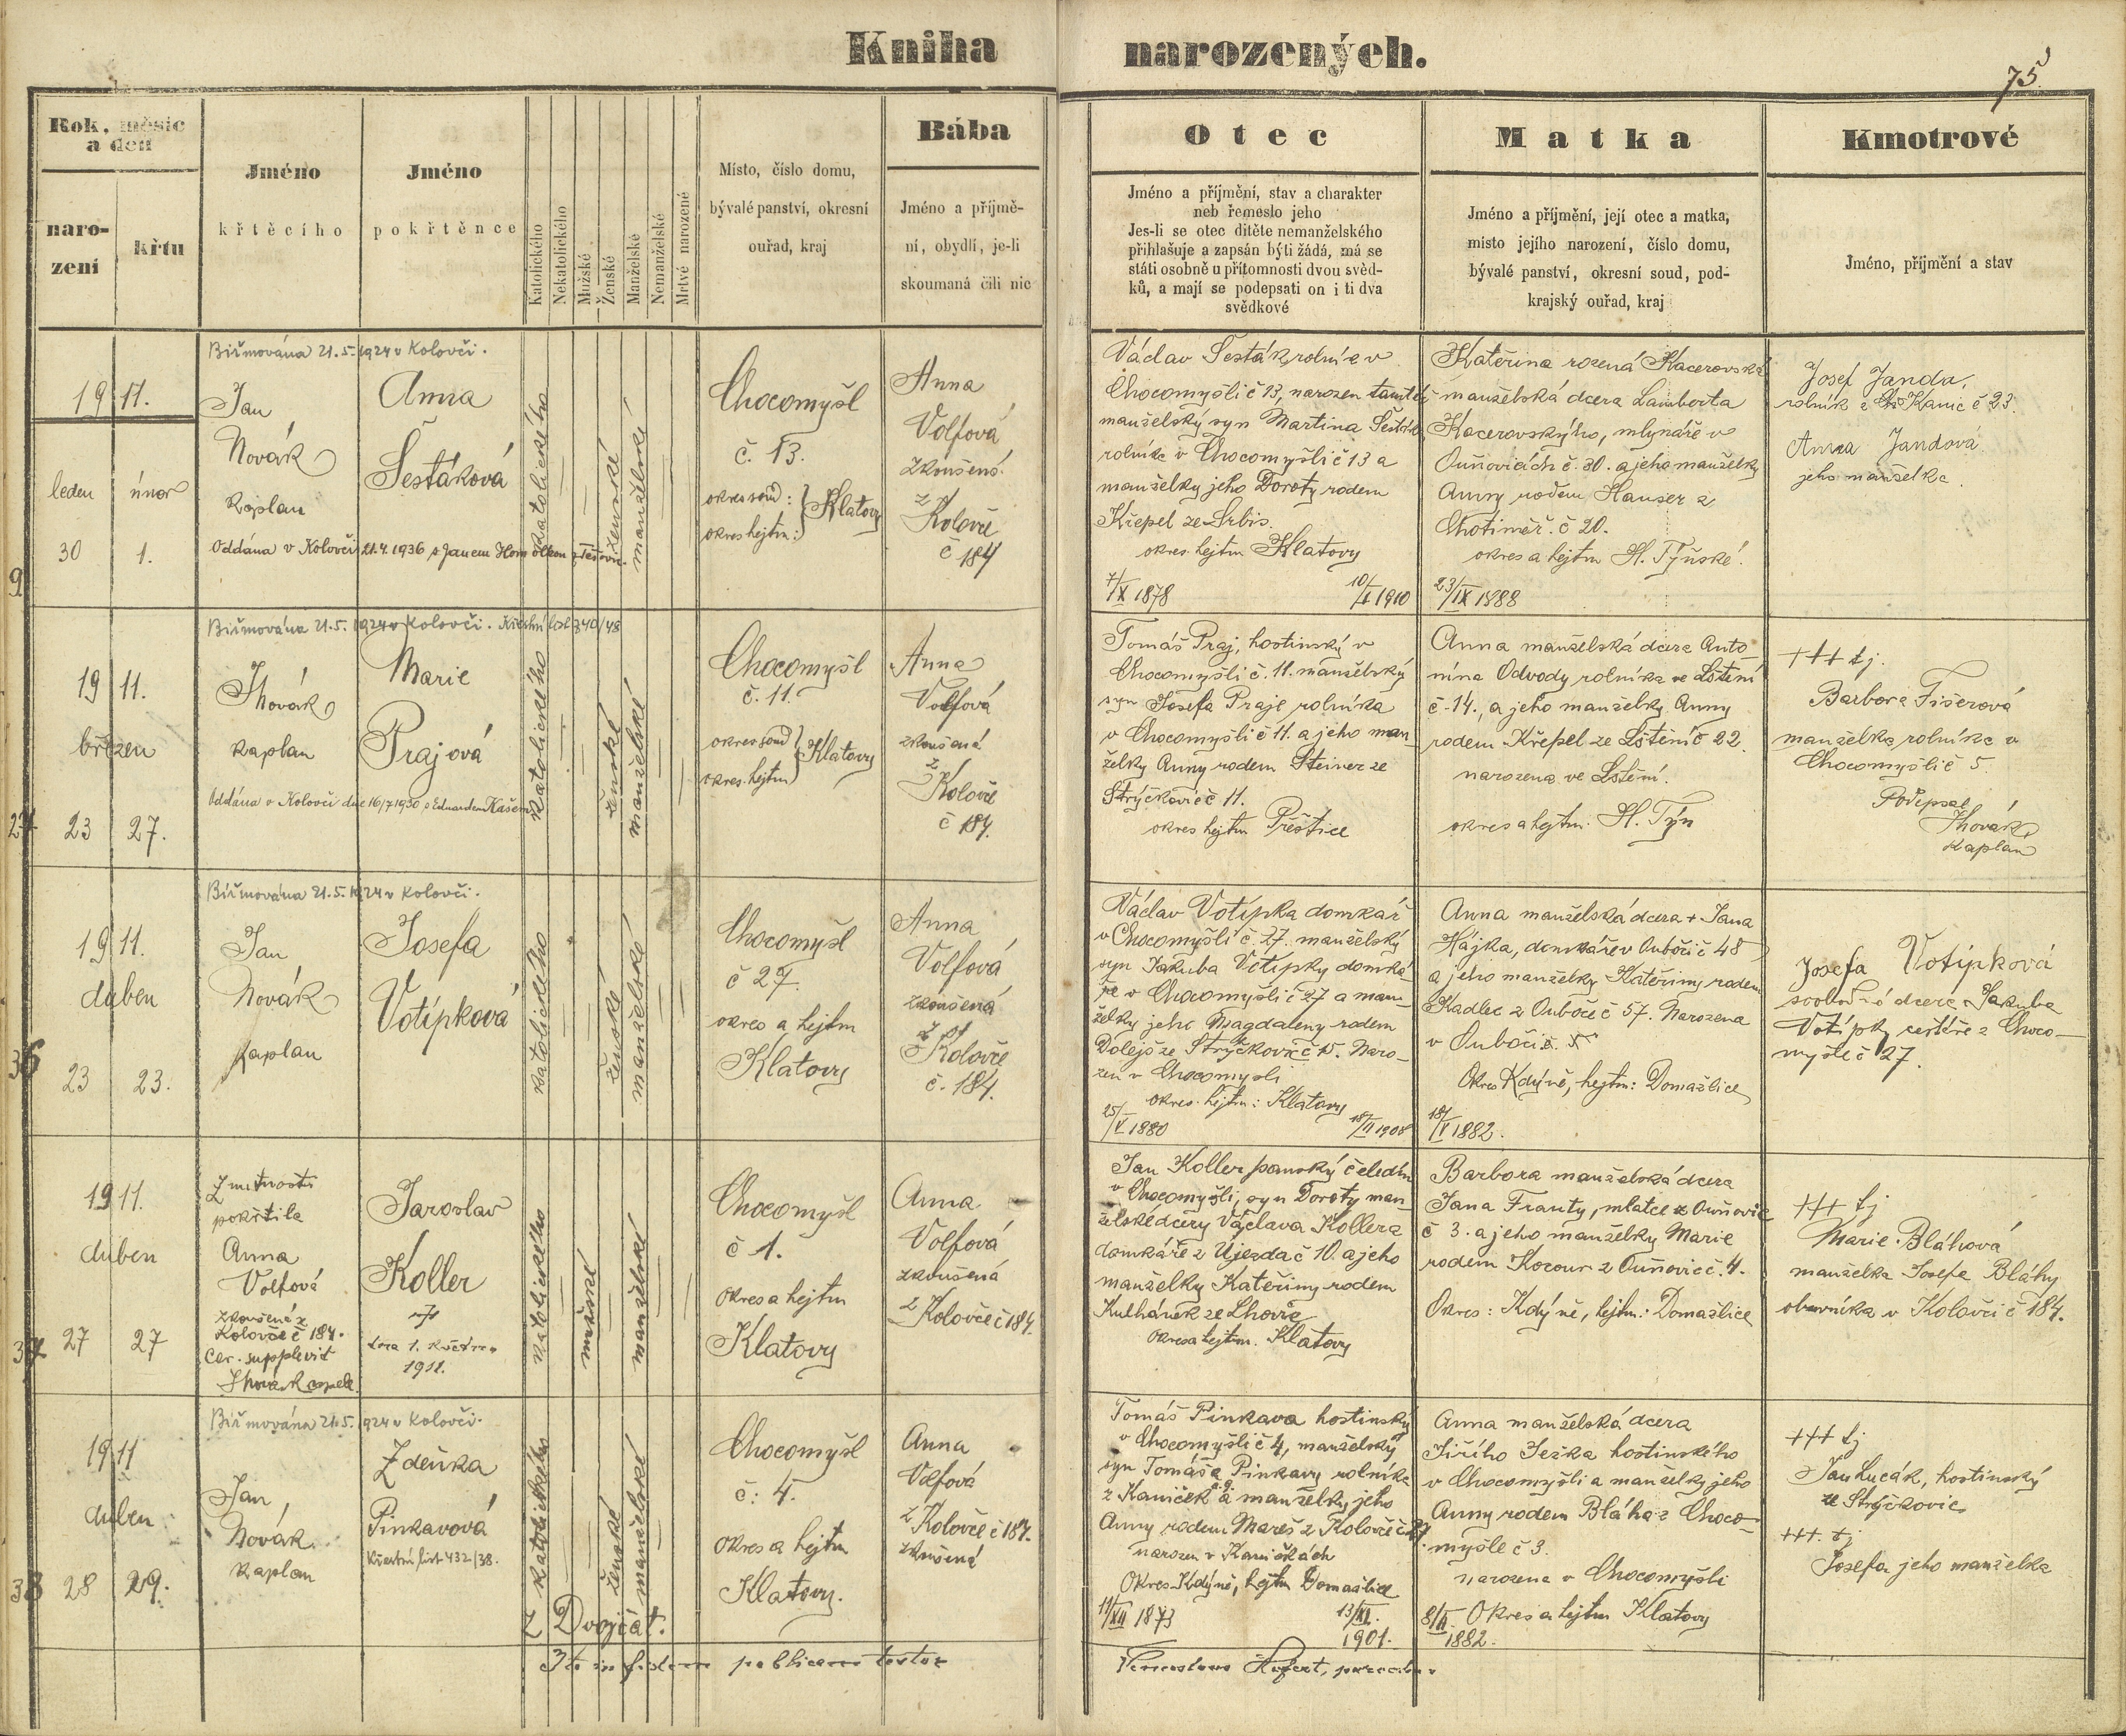 Kniha narozených.
75
Rok, měsíc
a den
naro-
zení
křtu
Jméno
křtěcího
Jméno
pokřtěnce
Katolického
Nekatolického
Mužské
Ženské
Manželské
Nemanželské
Mrtvě narozené
Místo, číslo domu,
bývalé panství, okresní
ouřad, kraj
Bába
Jméno a příjmě-
ní, obydlí, je-li
skoumaná čili nic
Otec
Jméno a příjmění, stav a charakter
neb řemeslo jeho
Jes-li se otec dítěte nemanželského
přihlašuje a zapsán býti žádá, má se
státi osobně u přítomnosti dvou svěd-
ků, a mají se podepsati on i ti dva
svědkové
Matka
Jméno a příjmění, její otec a matka,
místo jejího narození, číslo domu,
bývalé panství, okresní soud, pod-
krajský ouřad, kraj
Kmotrové
Jméno, příjmění a stav
9
1911.
leden únor
30 1.
Biřmována 21.5.1924 v Kolovči.
Jan
Novák
kaplan
Oddána v Kolovči 21.4.1936 s Janem
Anna
Šestáková
katolického
ženské
manželské
Chocomyšl
č. 13.
okres soud:
okres hejtm:
Klatovy
Anna
Volfová
zkoušená
z
Kolovče
č 184
Václav Šesták rolník v
Chocomyšli č 13, narozen tamtéž
manželský syn Martina Šestáka
rolníka v Chocomyšli č 13 a
manželky jeho Doroty rodem
Křepel ze Srbic.
okres hejtm Klatovy
7/X 1878
10/I 1910
Kateřina rozená Kacerovská
manželská dcera Lamberta
Kacerovského, mlynáře v
Ouňovicích č. 30. a jeho manželky
Anny rodem Hauser z
Chotiměř. č 20.
okres a hejtm H. Týnské.
23/IX 1888
Josef Janda,
rolník z Kanic č 23.
Anna Jandová
jeho manželka.
27
1911.
březen
23 27.
Biřmována 21.5.1924 v Kolovči. Křestní list 340/48
J Novák
kaplan
Oddána v Kolovči dne 16/7 1930 s Eduardem
Marie
Prajová
katolického
ženské
manželské
Chocomyšl
č. 11.
okres soud
okres. hejtm
Klatovy
Anna
Volfová
zkoušená
z
Kolovče
č 184.
Tomáš Praj, hostinský v
Chocomyšli č. 11. manželský
syn Josefa Praje rolníka
v Chocomyšli č 11. a jeho man-
želky Anny rodem Steiner ze
Strýčkovic č 11.
okres hejtm Přeštice
Anna manželská dcera Anto-
nína Odvody rolníka ve Lštění
č. 14., a jeho manželky Anny
rodem Křepel ze Lštění č 22.
narozena ve Lštění.
okres a hejtm. H. Týn
+++ tj.
Barbora Fišerová
manželka rolníka v
Chocomyšli č 5.
Podepsal
J Novák
kaplan
36
1911.
duben
23 23.
Biřmována 21.5.1924 v Kolovči.
Jan
Novák
kaplan
Josefa
Votípková
katolického
ženské
manželské
Chocomyšl
č 27.
okres a hejtm
Klatovy
Anna
Volfová
zkoušená
z
Kolovče
č. 184.
Václav Votípka domkář
v Chocomyšli č. 27. manželský
syn Jakuba Votípky domká-
ře v Chocomyšli č 27 a man-
želky jeho Magdaleny rodem
Dolejš ze Strýčkovic č 15. Naro-
zen v Chocomyšli
okres. hejtm: Klatovy
25/V 1880
18/II 1908
Anna manželská dcera + Jana
Hájka, domkáře v Oubočí č 48
a jeho manželky Kateřiny rodem
Kadlec z Ouboče č 57. Narozena
v Oubočí.
Okres Kdýně, hejtm: Domažlice
18/V 1882.
Josefa Votípková
svobodná dcera Jakuba
Votípky cestáře z Choco-
myšle č 27.
37
1911.
duben
27 27
Z nutnosti
pokřtila
Anna
Volfová
zkoušená z
Kolovče č 184.
Cer. supplevit
J Novák capell.
Jaroslav
Koller
dne 1. května
1911.
katolického
mužské
manželské
Chocomyšl
č 1.
okres a hejtm
Klatovy
Anna
Volfová
zkoušená
z Kolovče č 184.
Jan Koller panský čeledín
v Chocomyšli, syn Doroty man-
želské dcery Václava Kollera
domkáře z Újezda č 10. a jeho
manželky Kateřiny rodem
Kulhánek ze Lhovic
okres a hejtm. Klatovy
Barbora manželská dcera
Jana Franty, mlatce z Ouňovic
č 3. a jeho manželky Marie
rodem Kocour z Ouňovic č. 4.
Okres: Kdýně, hejtm: Domažlice
+++ tj
Marie Bláhová
manželka Josefa Bláhy
obuvníka v Kolovči č 184.
38
1911
duben
28 29.
Biřmována 21.5.1924 v Kolovči.
Jan
Novák
kaplan
Zdeňka
Pinkavová
Křestní list 432/38.
katolického
ženské
manželské
Z Dvojčat.
Chocomyšl
č: 4.
okres a hejtm
Klatovy.
Anna
Volfová
z Kolovče č 184.
zkoušená
Tomáš Pinkava hostinský
v Chocomyšli č 4, manželský
syn Tomáše Pinkavy rolníka
z Kaniček a manželky jeho
Anny rodem Mareš z Kolovče č 27
narozen v Kaničkách
Okres Kdýně, hejtm Domažlice
19/XII 1873
13/XI.
1901.
Anna manželská dcera
Jiřího Ježka hostinského
v Chocomyšli a manželky jeho
Anny rodem Bláha z Choco-
myšle č 3.
narozena v Chocomyšli
Okres a hejtm Klatovy
8/II. 1882.
+++ tj
Jan Lucák, hostinský
ze Strýčkovic
+++ tj
Josefa jeho manželka
Ita in fidem publicam testor